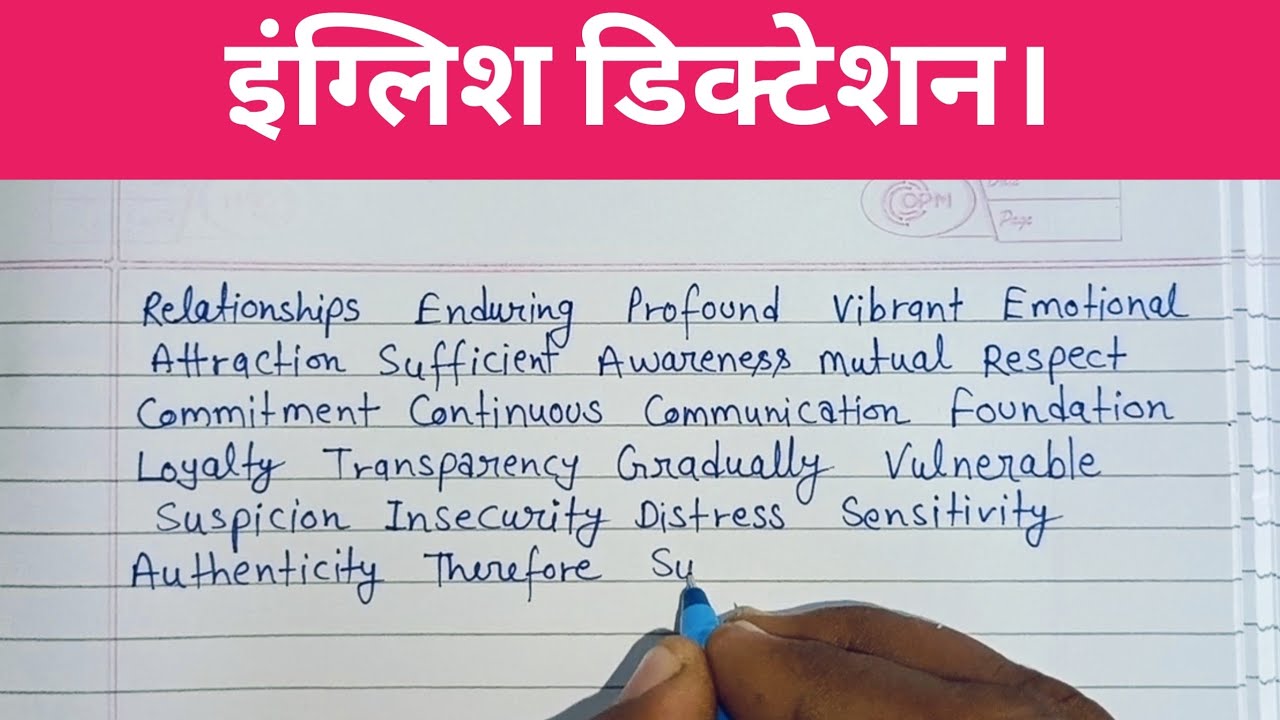 इंग्लिश डिक्टेशन।
OPM
Page
Relationships Enduring Profound Vibrant Emotional
Attraction Sufficient Awareness Mutual Respect
Commitment Continuous Communication Foundation
Loyalty Transparency Gradually Vulnerable
Suspicion Insecurity Distress Sensitivity
Authenticity Therefore Su